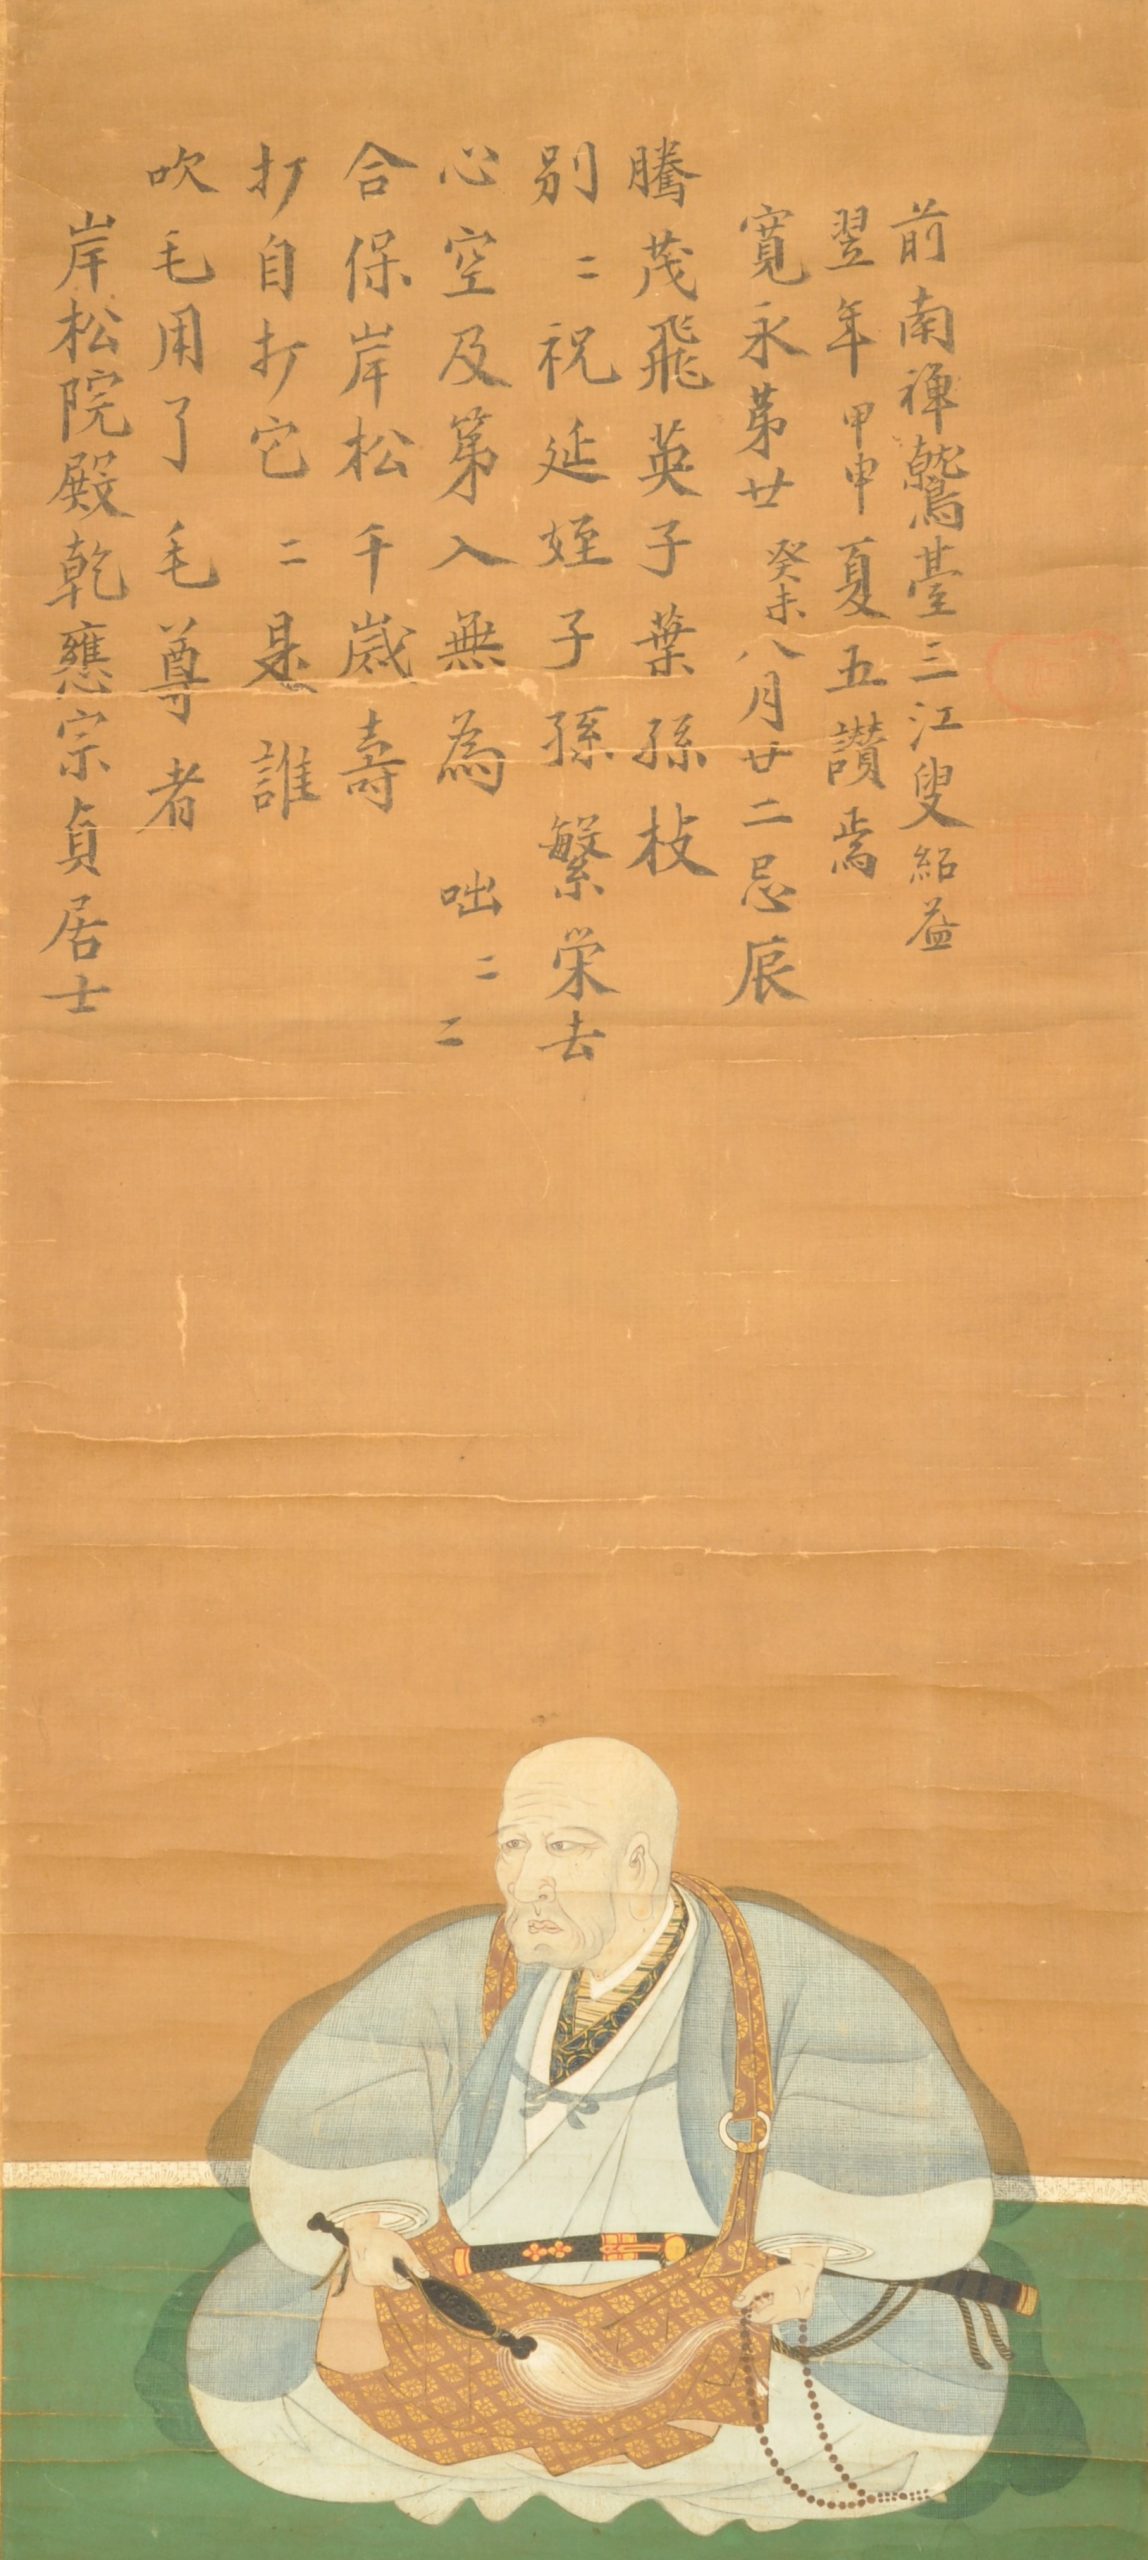 岸松院殿乾宗貞居士
吹毛用了毛尊者
打自打它〻是誰
合保岸松千歳壽
心空及第入無為　咄〻〻
別〻祝延姪子孫繁栄去
騰茂飛英子葉孫枝
寛永第廿癸未八月廿二忌辰
翌年甲申夏五讃焉
前南禅鷲臺三江叟紹益